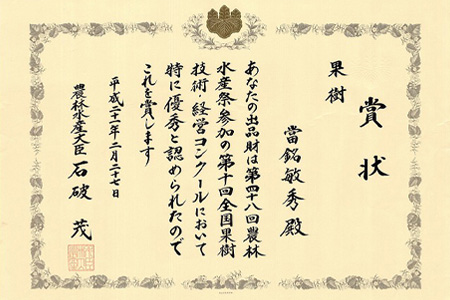 賞状
果樹
當銘敏秀殿
あなたの出品財は第四十八回農林
水産祭参加の第十回全国果樹
技術・経営コンクールにおいて
特に優秀と認められたので
これを賞します
平成二十一年二月二十七日
農林水産大臣 石破茂